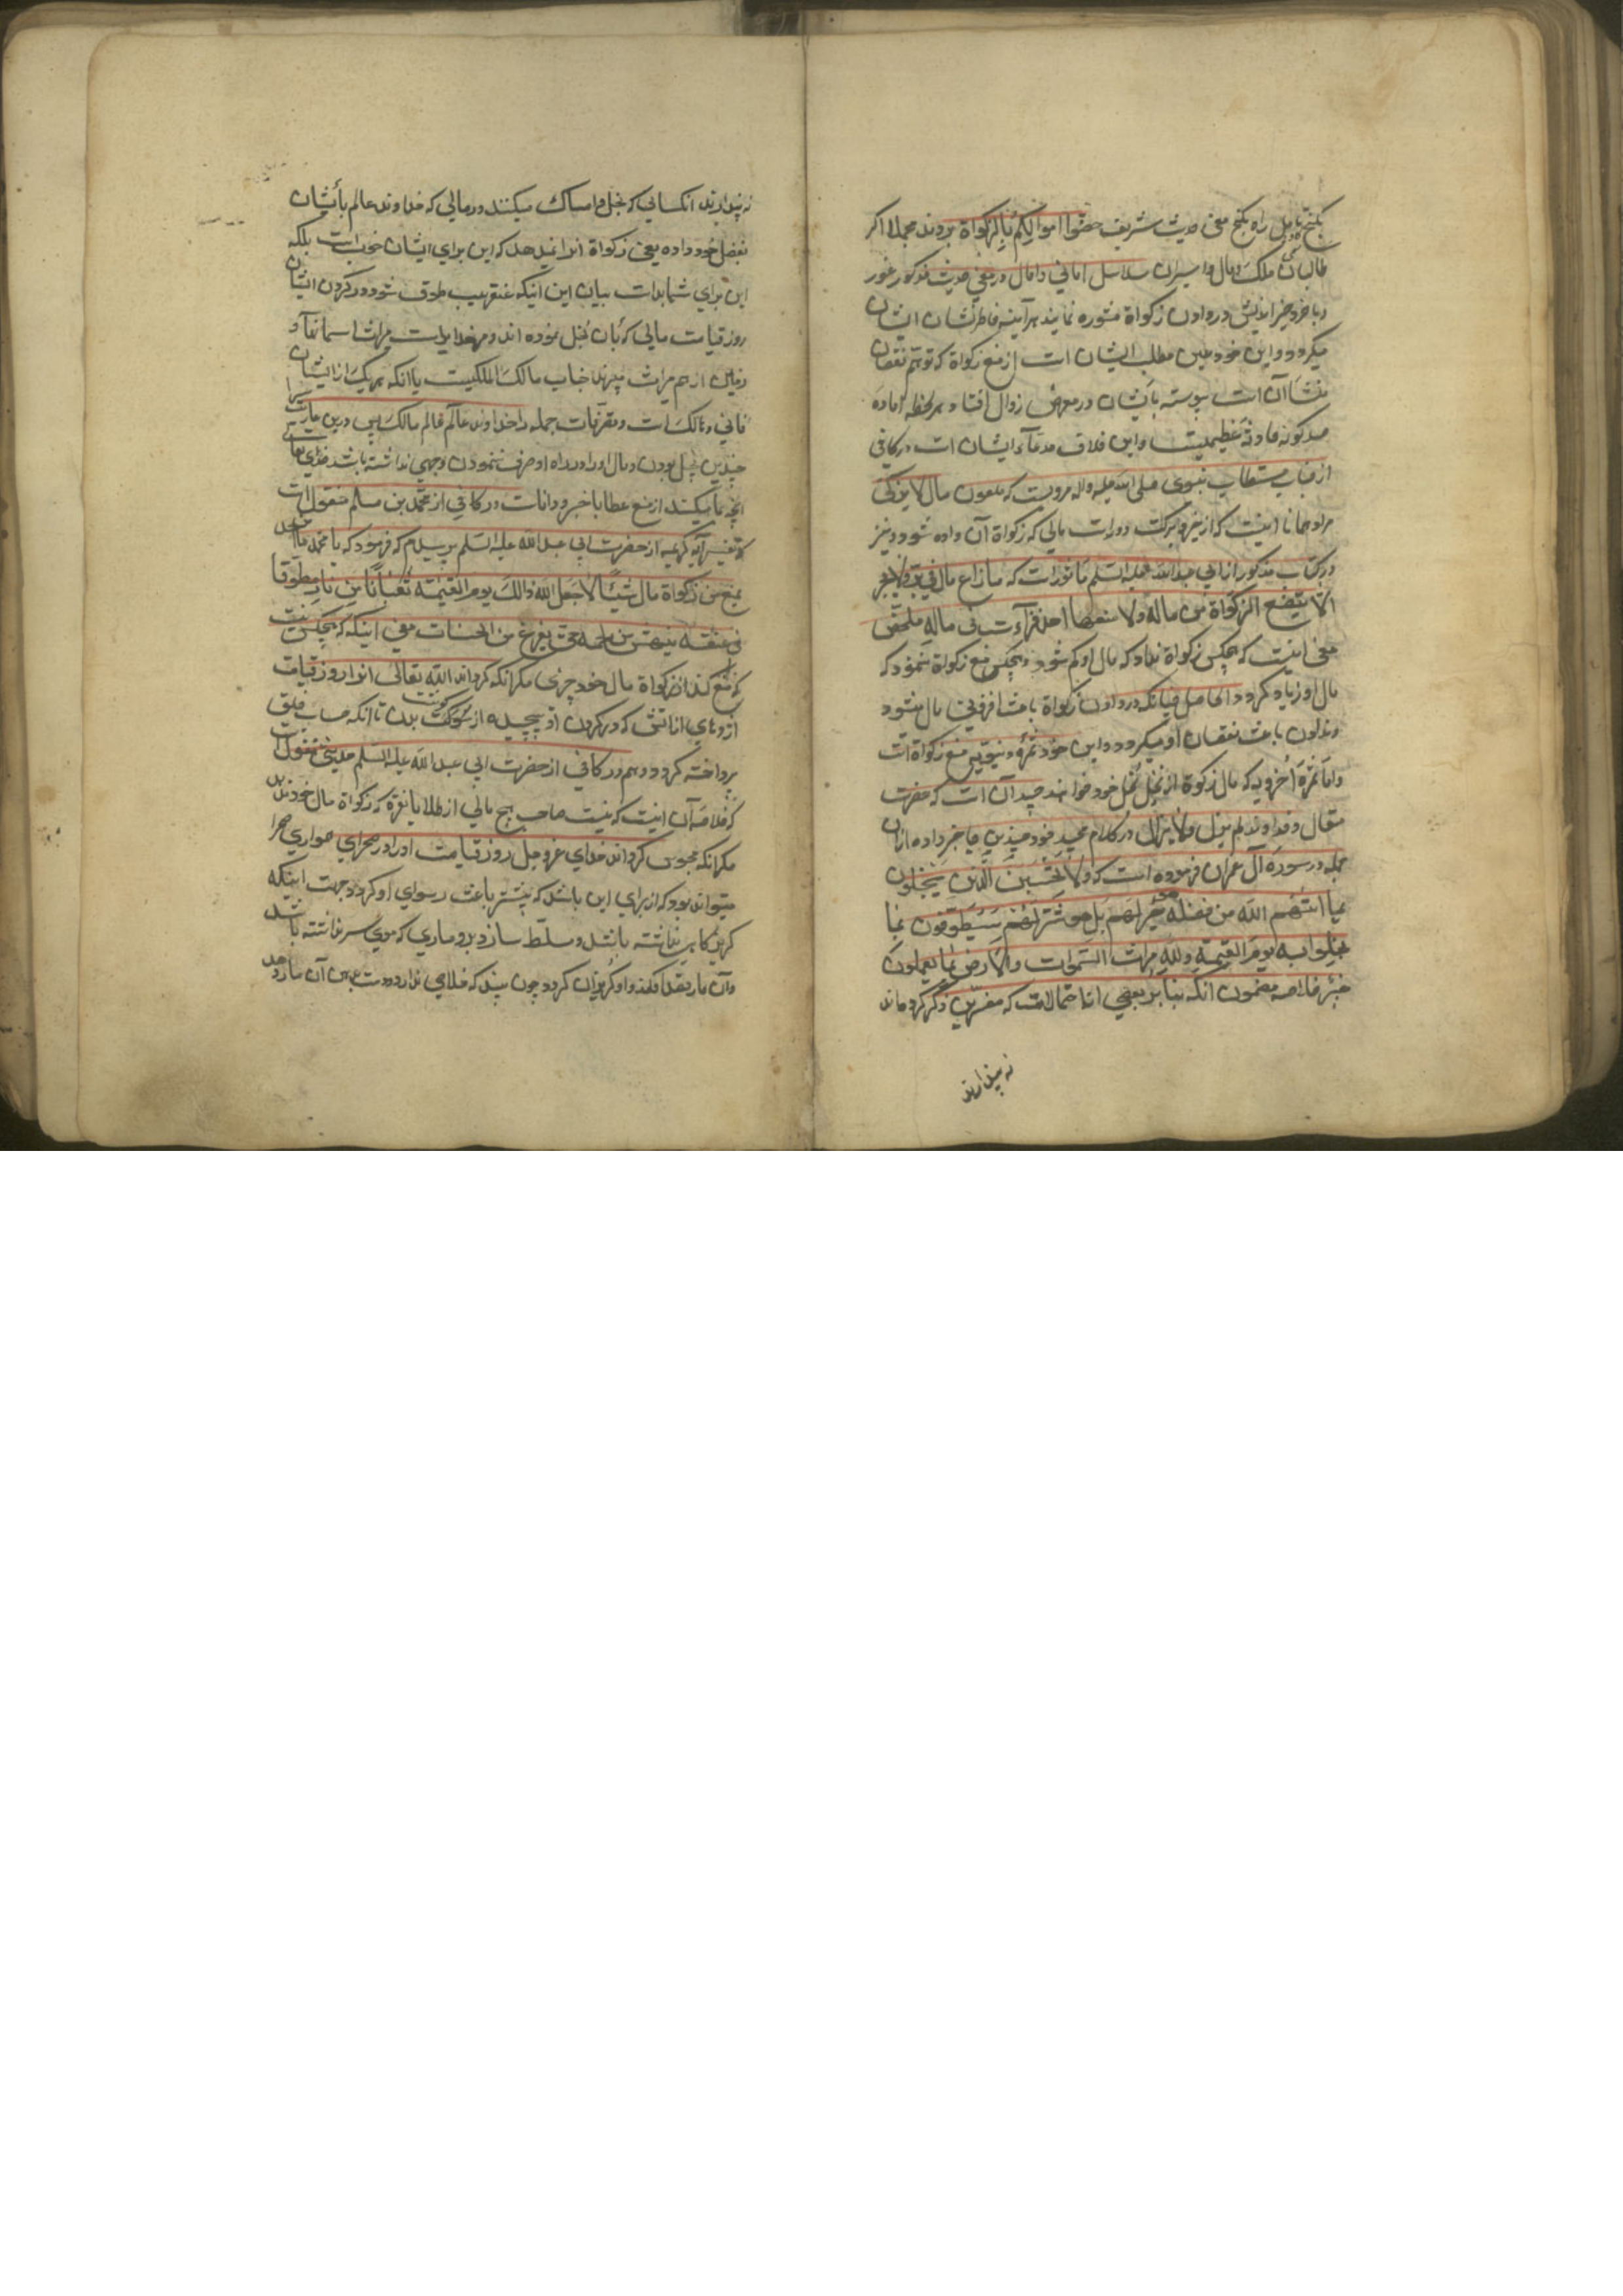 بکنج راه بکنج معنی حدیث شریف حصّنوا اموالکم بالزکواة بردند مجملا اکر
طالبان ملک و مال و اسیران سلاسل امانی و امال در معنی حدیث مذکور غور
و با خرد خیر اندیش در دادن زکواة مشوره نمایند هرآینه خاطرنشان ایشان
میکردد و این خود عین مطلب ایشان است از منع زکواة که توهّم نقصان
منشاآن است پیوسته باَیشان در معرض زوال افتاد و هر لحظه اماده
صد کونه حادثهٔ عظیمیست و این خلاف مدعاء ایشان است در کافی
از جناب مستطاب نبوی صلی الله علیه واله مرویست که ملعون مال لا یزکی
مراد همانا اینست که از خیر و برکت دورات مالی که زکواة آن داده نشود و نیز
در کتاب مذکور از ابی عبدالله علیه السلم ماثورات که ما ضاع مال فی بر ولا بحر
الا بتضیع الزکواة من ماله ولا منعها احد فزآءت فی ماله ملخص
معنی اینست که هیچکس زکواة نداد که مال او کم شود و هیچکس منع زکواة ننمود که
مال او زیاد کردد الحاصل چنانکه در دادن زکواة باعث افزونی مال میشود
ندادن باعث نقصان او میکردد و این خود ثمره دنیویه منع زکواة است
و اما ثمرهٔ اخرویه که مال زکوة از نخل بخل خود خواهند چید آن است که حضرت
متعال و خداوند لم یزل ولا یزال در کلام مجید خود چندین جا خبر داده ازان
جمله در سورهٔ آل عمران فرموده است که ولا تحسبن الذین یبخلون
بما اتیهم الله من فضله هو خیرا لهم بل هو شر لهم سیطوقون بما
بخلوا به یوم القیمة ولله میراث السموات والارض بما یعملون
خبیر خلاصه مضمون انکه بنا بر بعضی از احتمالات که مفسرین ذکر کرده اند
نه پندارند
نه پندارند انکسانی که بخل و امساک میکنند در مالی که خداوند عالم باَیشان
بفضل خود داده یعنی زکواة انرا نمیدهند که این برای ایشان خوب است بلکه
این برای شما بد است بیان این اینکه عنقریب طوق شود در کردن ایشان
روز قیامت مالی که بآن بخل نموده اند و مر خدایراست میراث اسمانها و
زمین از هم میراث میبرند جناب مالک الملکیست یا انکه هر یک از ایشان
فانی و هالک است و متعرّفات جمله را خداوند عالم مالک پس درین میراث را
چندین بخیل بودن و مال او را در راه او صرف ننمودن وجهی نداشته باشد خدای تعالی
انچه با میکنند از منع عطا باخبر و دانات در کافی از محمد بن مسلم منقول است
که تفسیر آیه کریمه از حضرت ابی عبد الله علیه السلم پرسیدم که فرمود که یا محمد ما احد
یمنع من زکواة مال شیئًا الا جعل الله ذالک یوم القیمة ثعبانًا من نار مطوقا
فی عنقه ینهش من لحمه حتی یفرغ من الحساب معنی اینکه که هیچکس نیست
که منع کند از زکواة مال خود چیزی مکر انکه کرداند الله تعالی انرا روز قیامت
اژدهای از اتش که در کردن او پیچیده از کوشت بدن تا انکه حساب خلق
پرداخته کردد و هم در کافی از حضرت ابی عبد الله علیه السلم حدیثی منقول است
که خلاصهٔ آن اینست که نیست صاحب هیچ مالی از طلا یا نقره که زکواة مال خود ندهد
مکر انکه محبوس کرداند خدای عز و جل روز قیامت او را در صحرای همواری
میتواند بود که از برای این باشد که بیشتر باعث رسوای او کردد و جهت اینکه
کریزکاهی نداشته باشد و مسلط سازد برو ماری که موی سر نداشته باشد
و آن مار بقصد افکند و او کریزان کردد چون بیند که خلاصی ندارد دست بدهن آن مار دهد